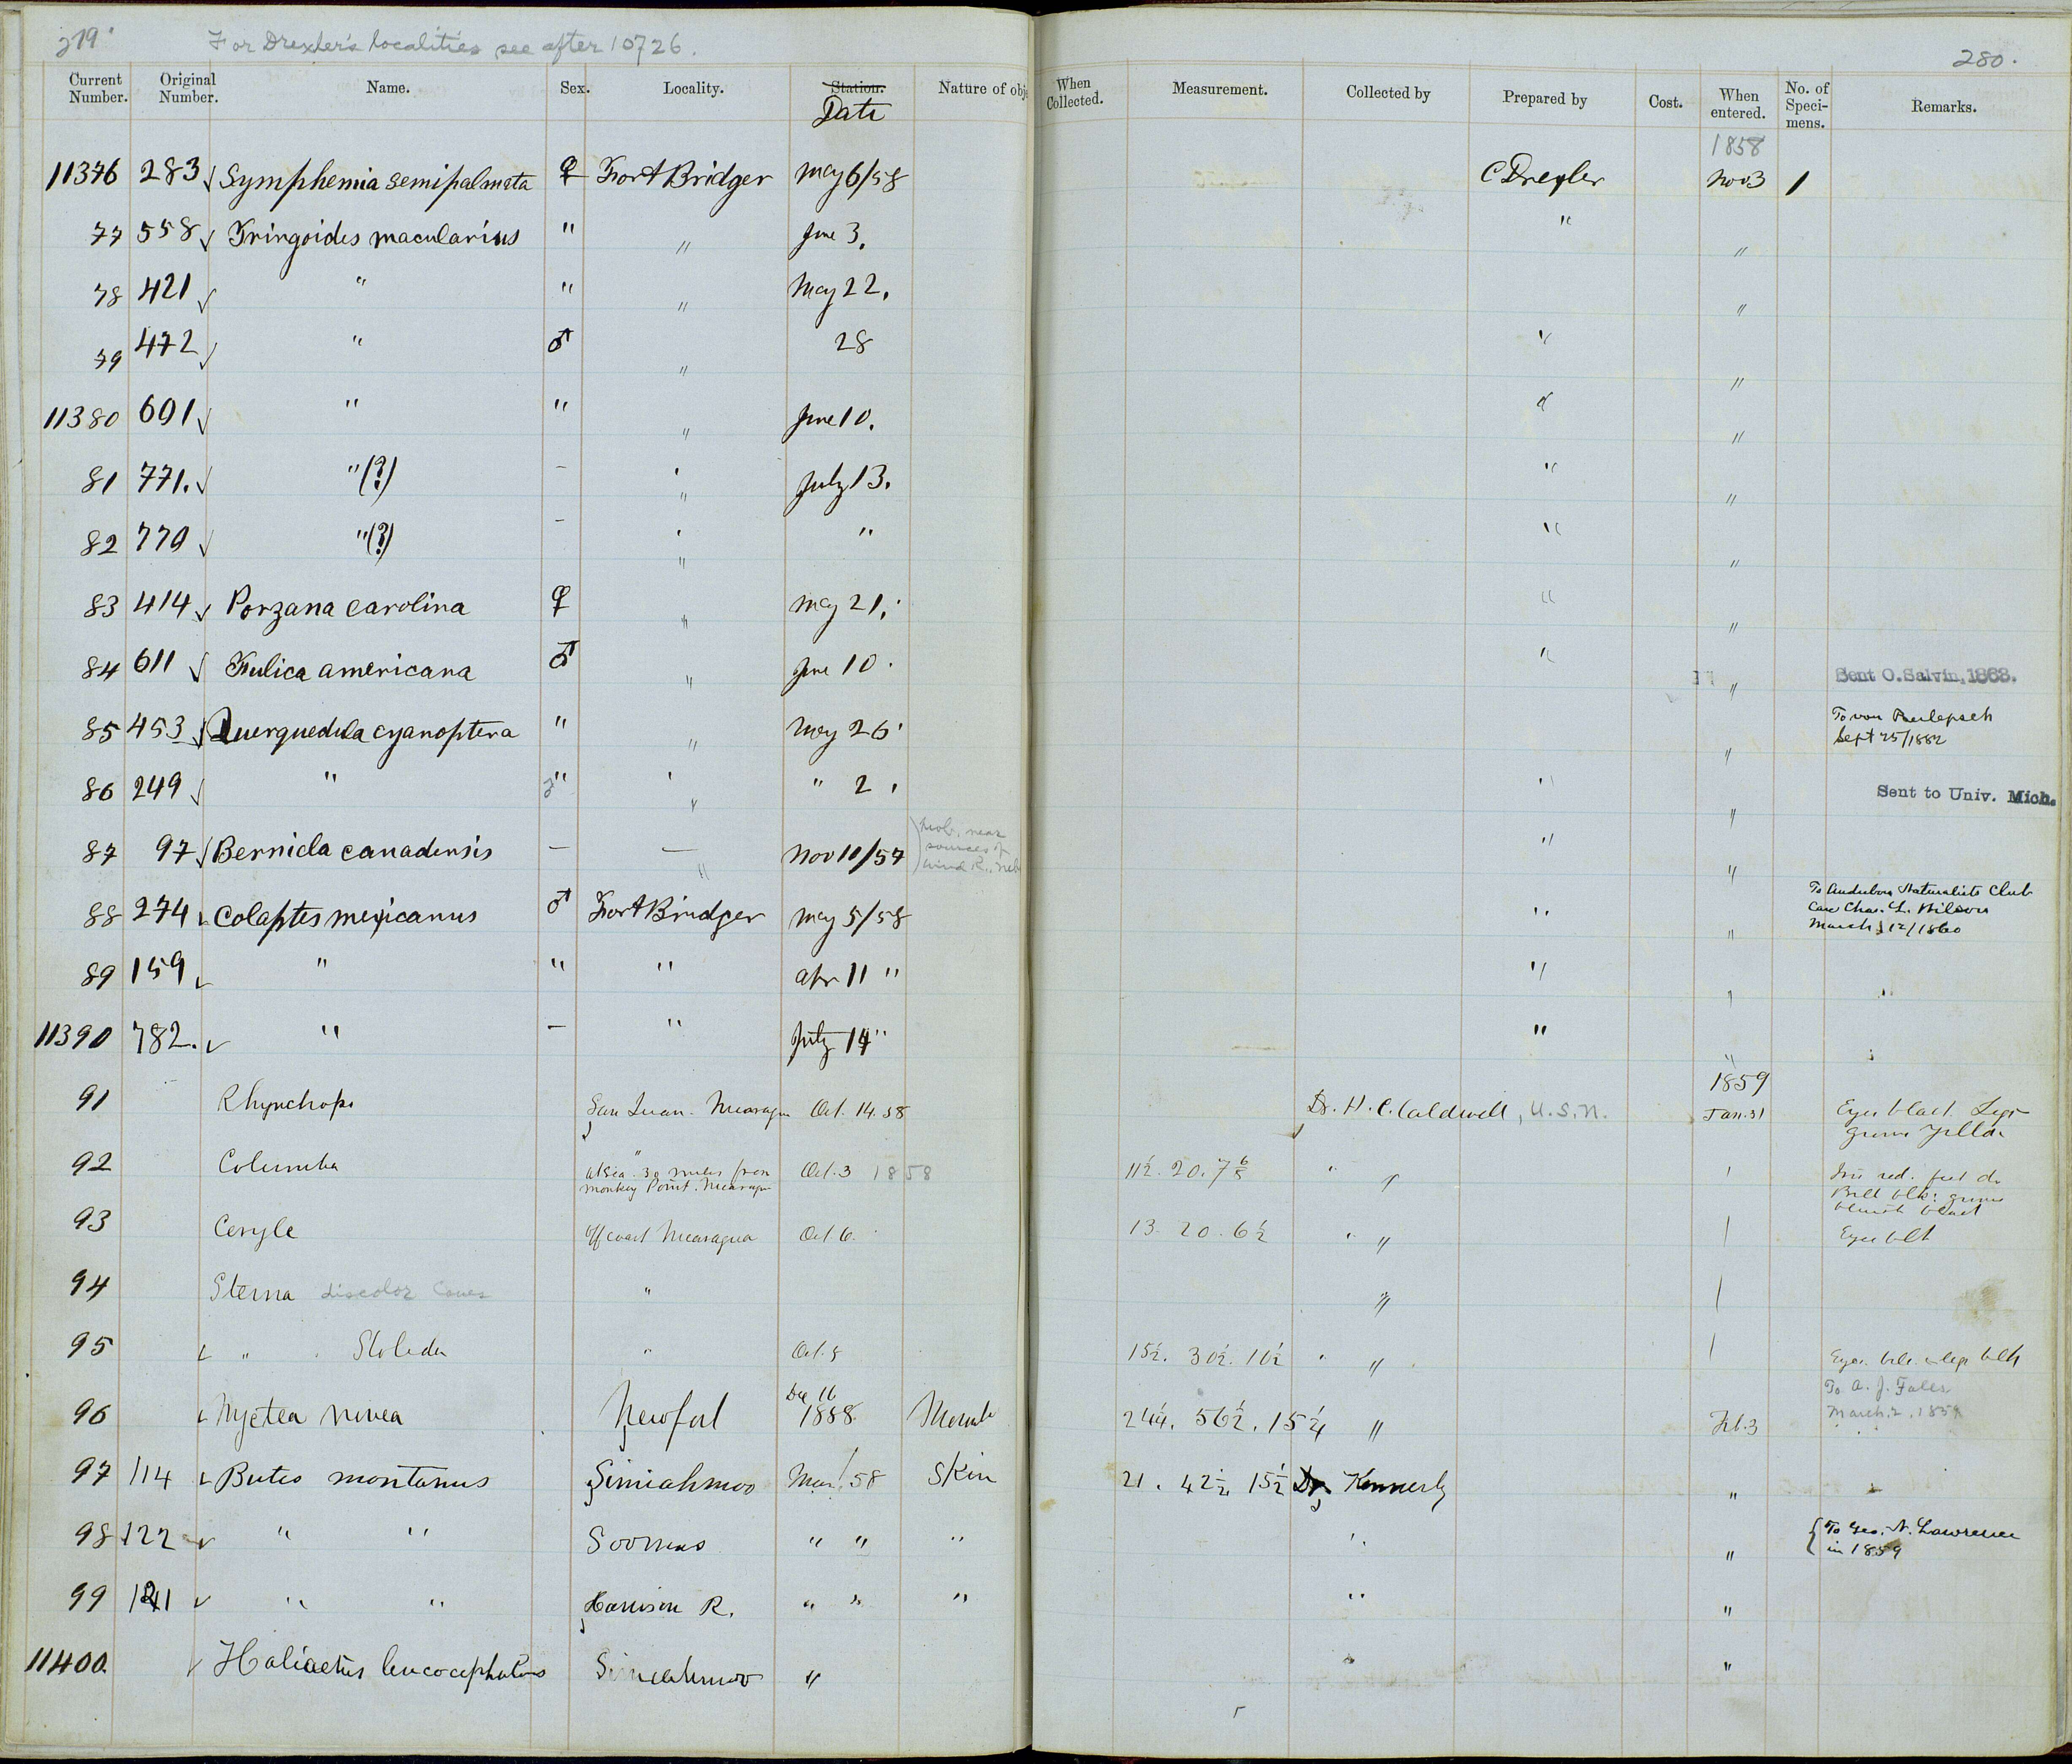 279 For Drexler's localities see after 10726. 280.
Current Number. Original Number. Name. Sex. Locality. Station. Date Nature of obje When Collected. Measurement. Collected by Prepared by Cost. When entered. No. of Speci-mens. Remarks.
1858
11376 283 ✓ Symphemia semipalmata ♀ Fort Bridger May 6/58 C Drexler Nov 3 1
77 558 ✓ Tringoides macularius " " June 3. " "
78 421 ✓ " " " May 22. "
79 472 ✓ " ♂ " 28 " "
11380 601 ✓ " " " June 10. " "
81 771. ✓ "(?) – " July 13. " "
82 770 ✓ "(?) – " " " "
83 414 ✓ Porzana carolina ♀ " May 21. " "
84 611 ✓ Fulica americana ♂ " June 10. " " Sent O. Salvin, 1868.
85 453 ✓ Querquedula cyanoptera " " May 26. " To von Berlepsch
Sept 25/1882
86 249 ✓ " " " " 2. " " Sent to Univ. Mich.
87 97 ✓ Bernicla canadensis — — " Nov 11/57 Prob. near sources of Wind R., Neb " "
88 274 ✓ Colaptes mexicanus ♂ Fort Bridger May 5/58 " " To Audubon Naturalists Club
Care Chas. L. Wilson
March 12/1860
89 159 ✓ " " " Apr 11 " " " "
11390 782. ✓ " – " July 14 " " "
1859
91 Rhynchops San Juan. Nicaragua Oct. 14. 58 Dr. H. C. Caldwell, U.S.N. Jan. 31 Eyes black. Legs
92 Columba at sea. 30 miles from Oct. 3 1858 11½. 20. 7 " " Iris red. feet do
Monkey Point. Nicaragua Bill blk:
bluish black
93 Ceryle off coast Nicaragua Oct 6. 13. 20. 6½ " " Eyes blk
94 Sterna discolor Coues " "
95 ✓ " Stolida " Oct. 8 15½. 30½. 10½ " "
96 ✓ Nyctea nivea Newfoul Dec 16
1858. Mount 24¼. 56½. 15¼ " Feb. 3 To A. J. Falls
March. 2, 1859
97 114 ✓ Buteo montanus Simiahmoo Mar/58 Skin 21. 42½ 15½ Dr. Kennerly "
98 122 ✓ " " Soomas " " " " " To Geo. N. Lawrence
in 1859
99 ✓ " " Harrison R. " " " " "
11400. ✓ Haliaetus leucocephalus Simiahmoo " " "